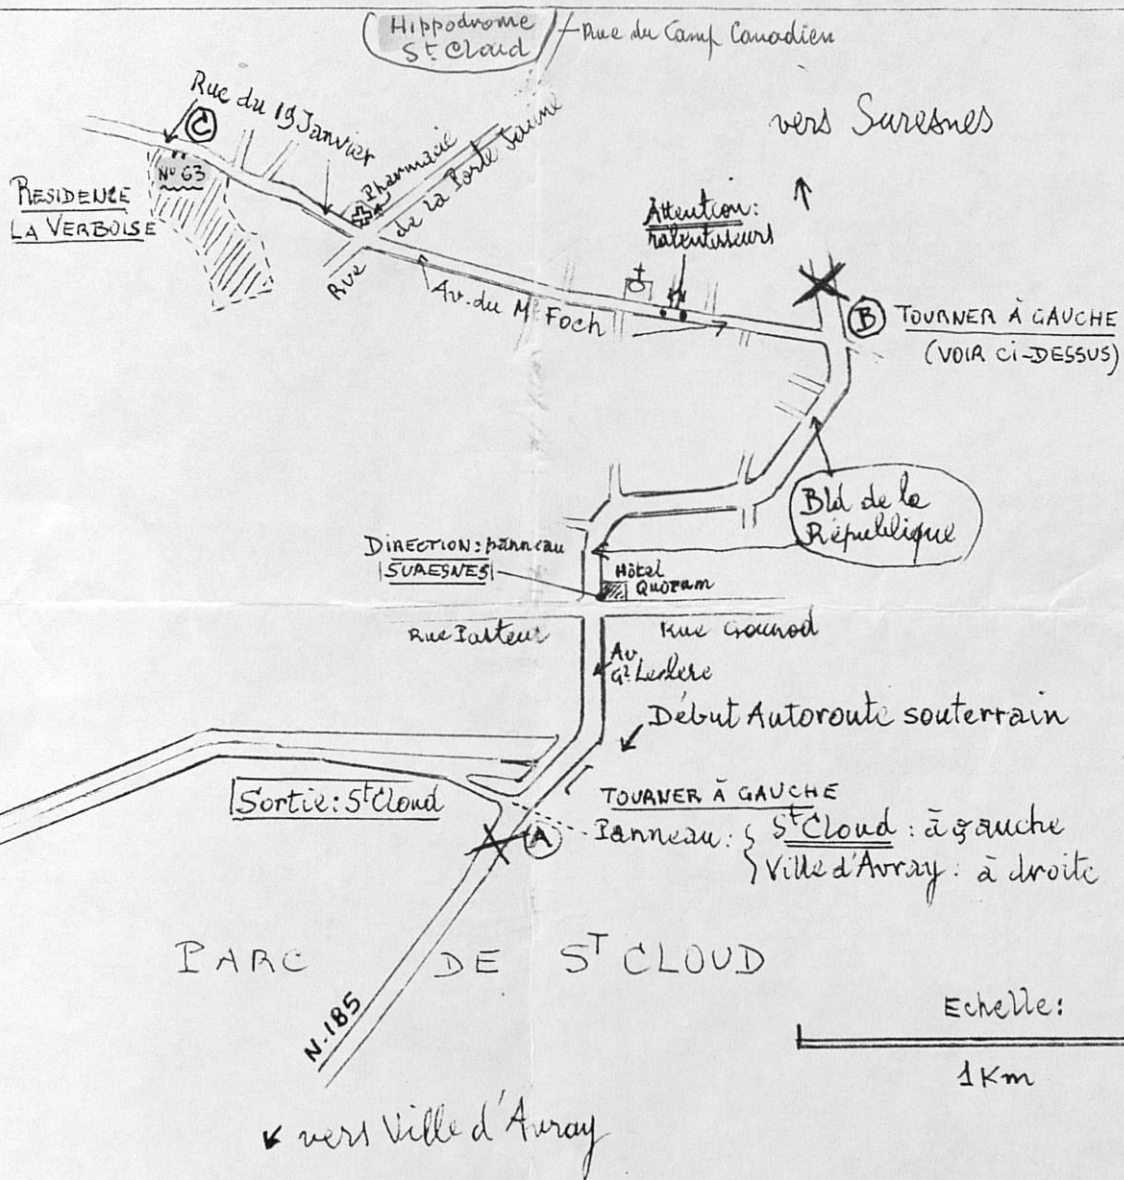 Hippodrome
St Cloud
Rue du Camp Canadien
Rue du 19 Janvier
C
vers Suresnes
Pharmacie
N° 63
RESIDENCE
LA VERBOISE
Rue de la Porte Jaune
Attention:
ralentisseurs
Av. du Mal Foch
B
TOURNER À GAUCHE
(VOIR CI-DESSUS)
Bld de la
République
DIRECTION: panneau
SURESNES
Hôtel
Quorum
Rue Pasteur
Rue Gounod
Av
Gl Leclerc
Début Autoroute souterrain
Sortie: St Cloud
TOURNER À GAUCHE
A
Panneau: { St Cloud: à gauche
Ville d'Avray: à droite
PARC DE ST CLOUD
N.185
Echelle:
1 Km
vers Ville d'Avray